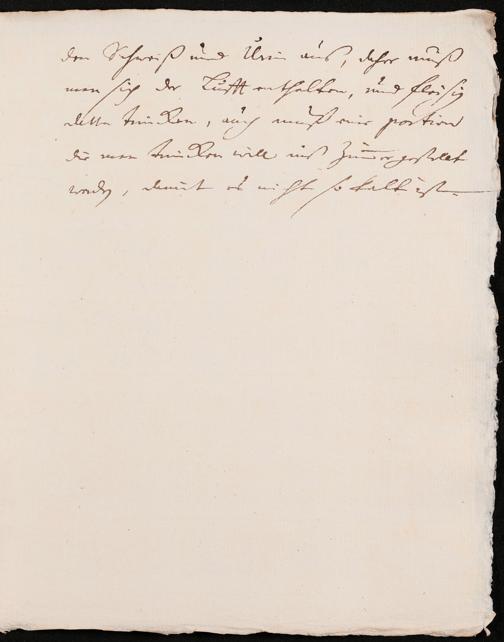 den Schweiß und Urin aus, daher muß
man sich der Lufft enthalten, und fleisig
trincken, auch muß eine portion
die man trincken will ins Zimmer gestellt
werden, damit es nicht so kalt ist.